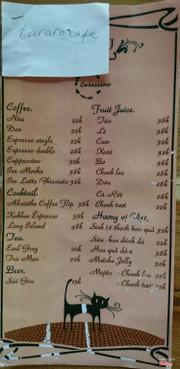 tararocafe
Coffee.
Nâu 22k
Đen 22k
Espresso single 22k
Espresso double 28k
Cappuccino 32k
Ice Mocha 38k
Ice Latte Ghiaciato 32k
Cocktail.
Absinthe Coffee Flip 58k
Kahlua Espresso 58k
Long Island 48k
Tea.
Earl Gray 20k
Trà Mạn 22k
Beer.
Sài Gòn 15k
Fruit Juice.
Táo 38k
Lê 38k
Cam 38k
Xoài 38k
Bơ 38k
Chanh leo
Dứa 38k
Cà Rốt 38k
Chanh tươi 22k
Hương vị Việt.
Sinh tố thạch hoa quả 32k
Sữa chua đánh đá
Hoa quả dầm
Matcha Jelly 32k
Mojito - Chanh leo 22k
- Chanh tươi